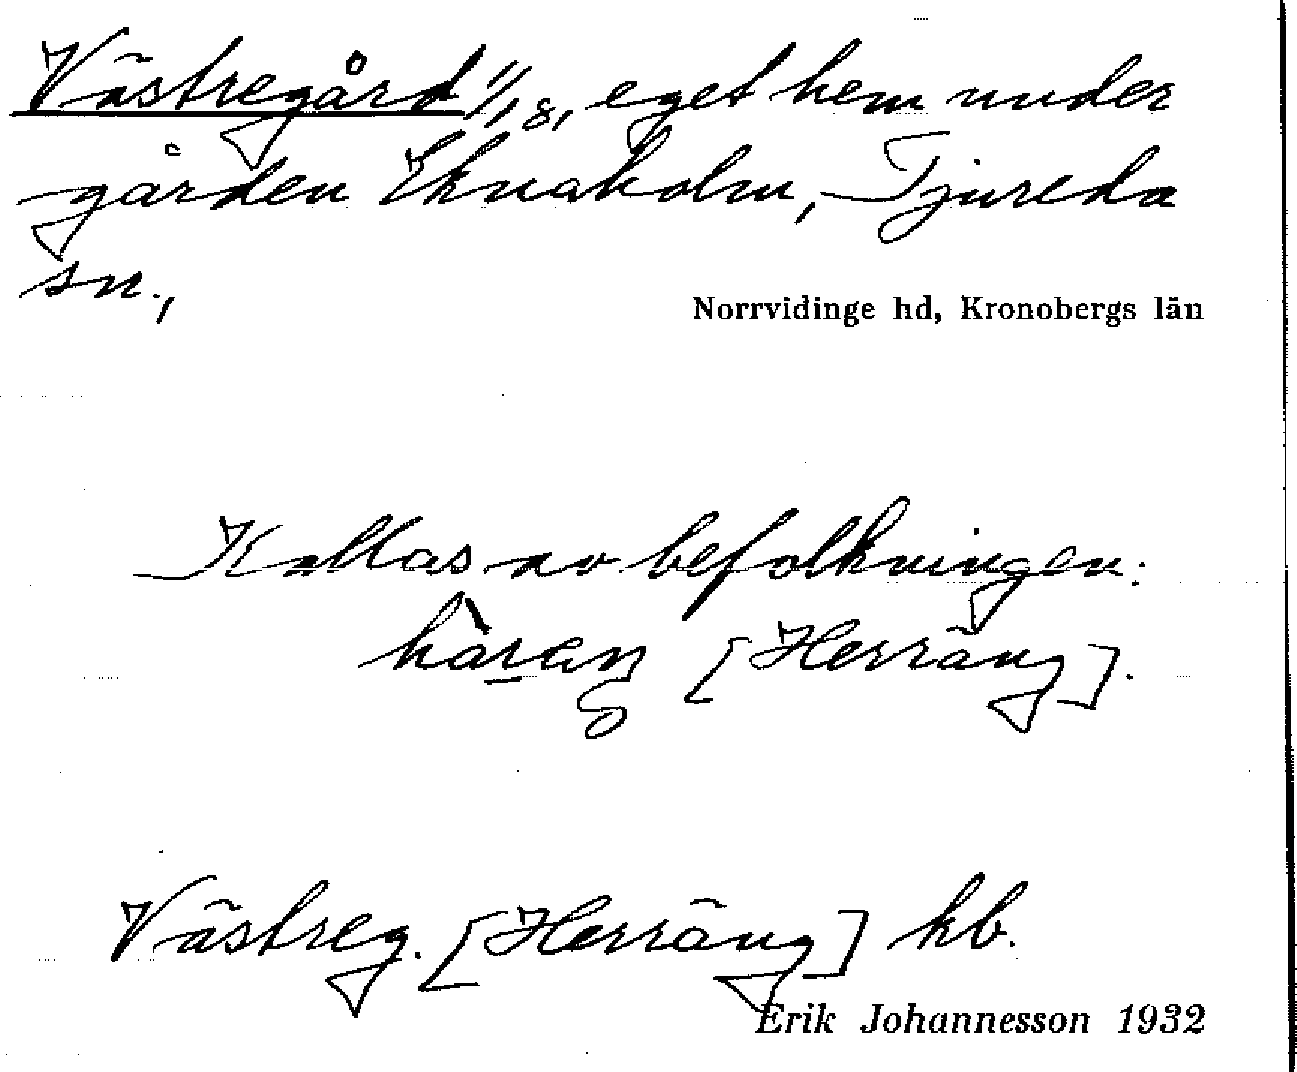 Västregård 1/1,8, eget hem under
gården Eknaholm, Tjureda
sn.,
Norrvidinge hd, Kronobergs län
Kallas av befolkningen:
[Herräng].
Västreg. [Herräng] kb.
Erik Johannesson 1932